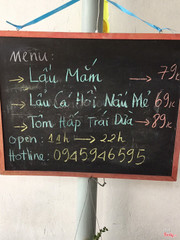 Menu:
→ Lẩu Mắm → 79k
→ Lẩu Cá Hồi Nấu Mẻ 69k
→ Tôm Hấp Trái Dừa → 89k
open: 11h → 22h
Hotline: 0945946595